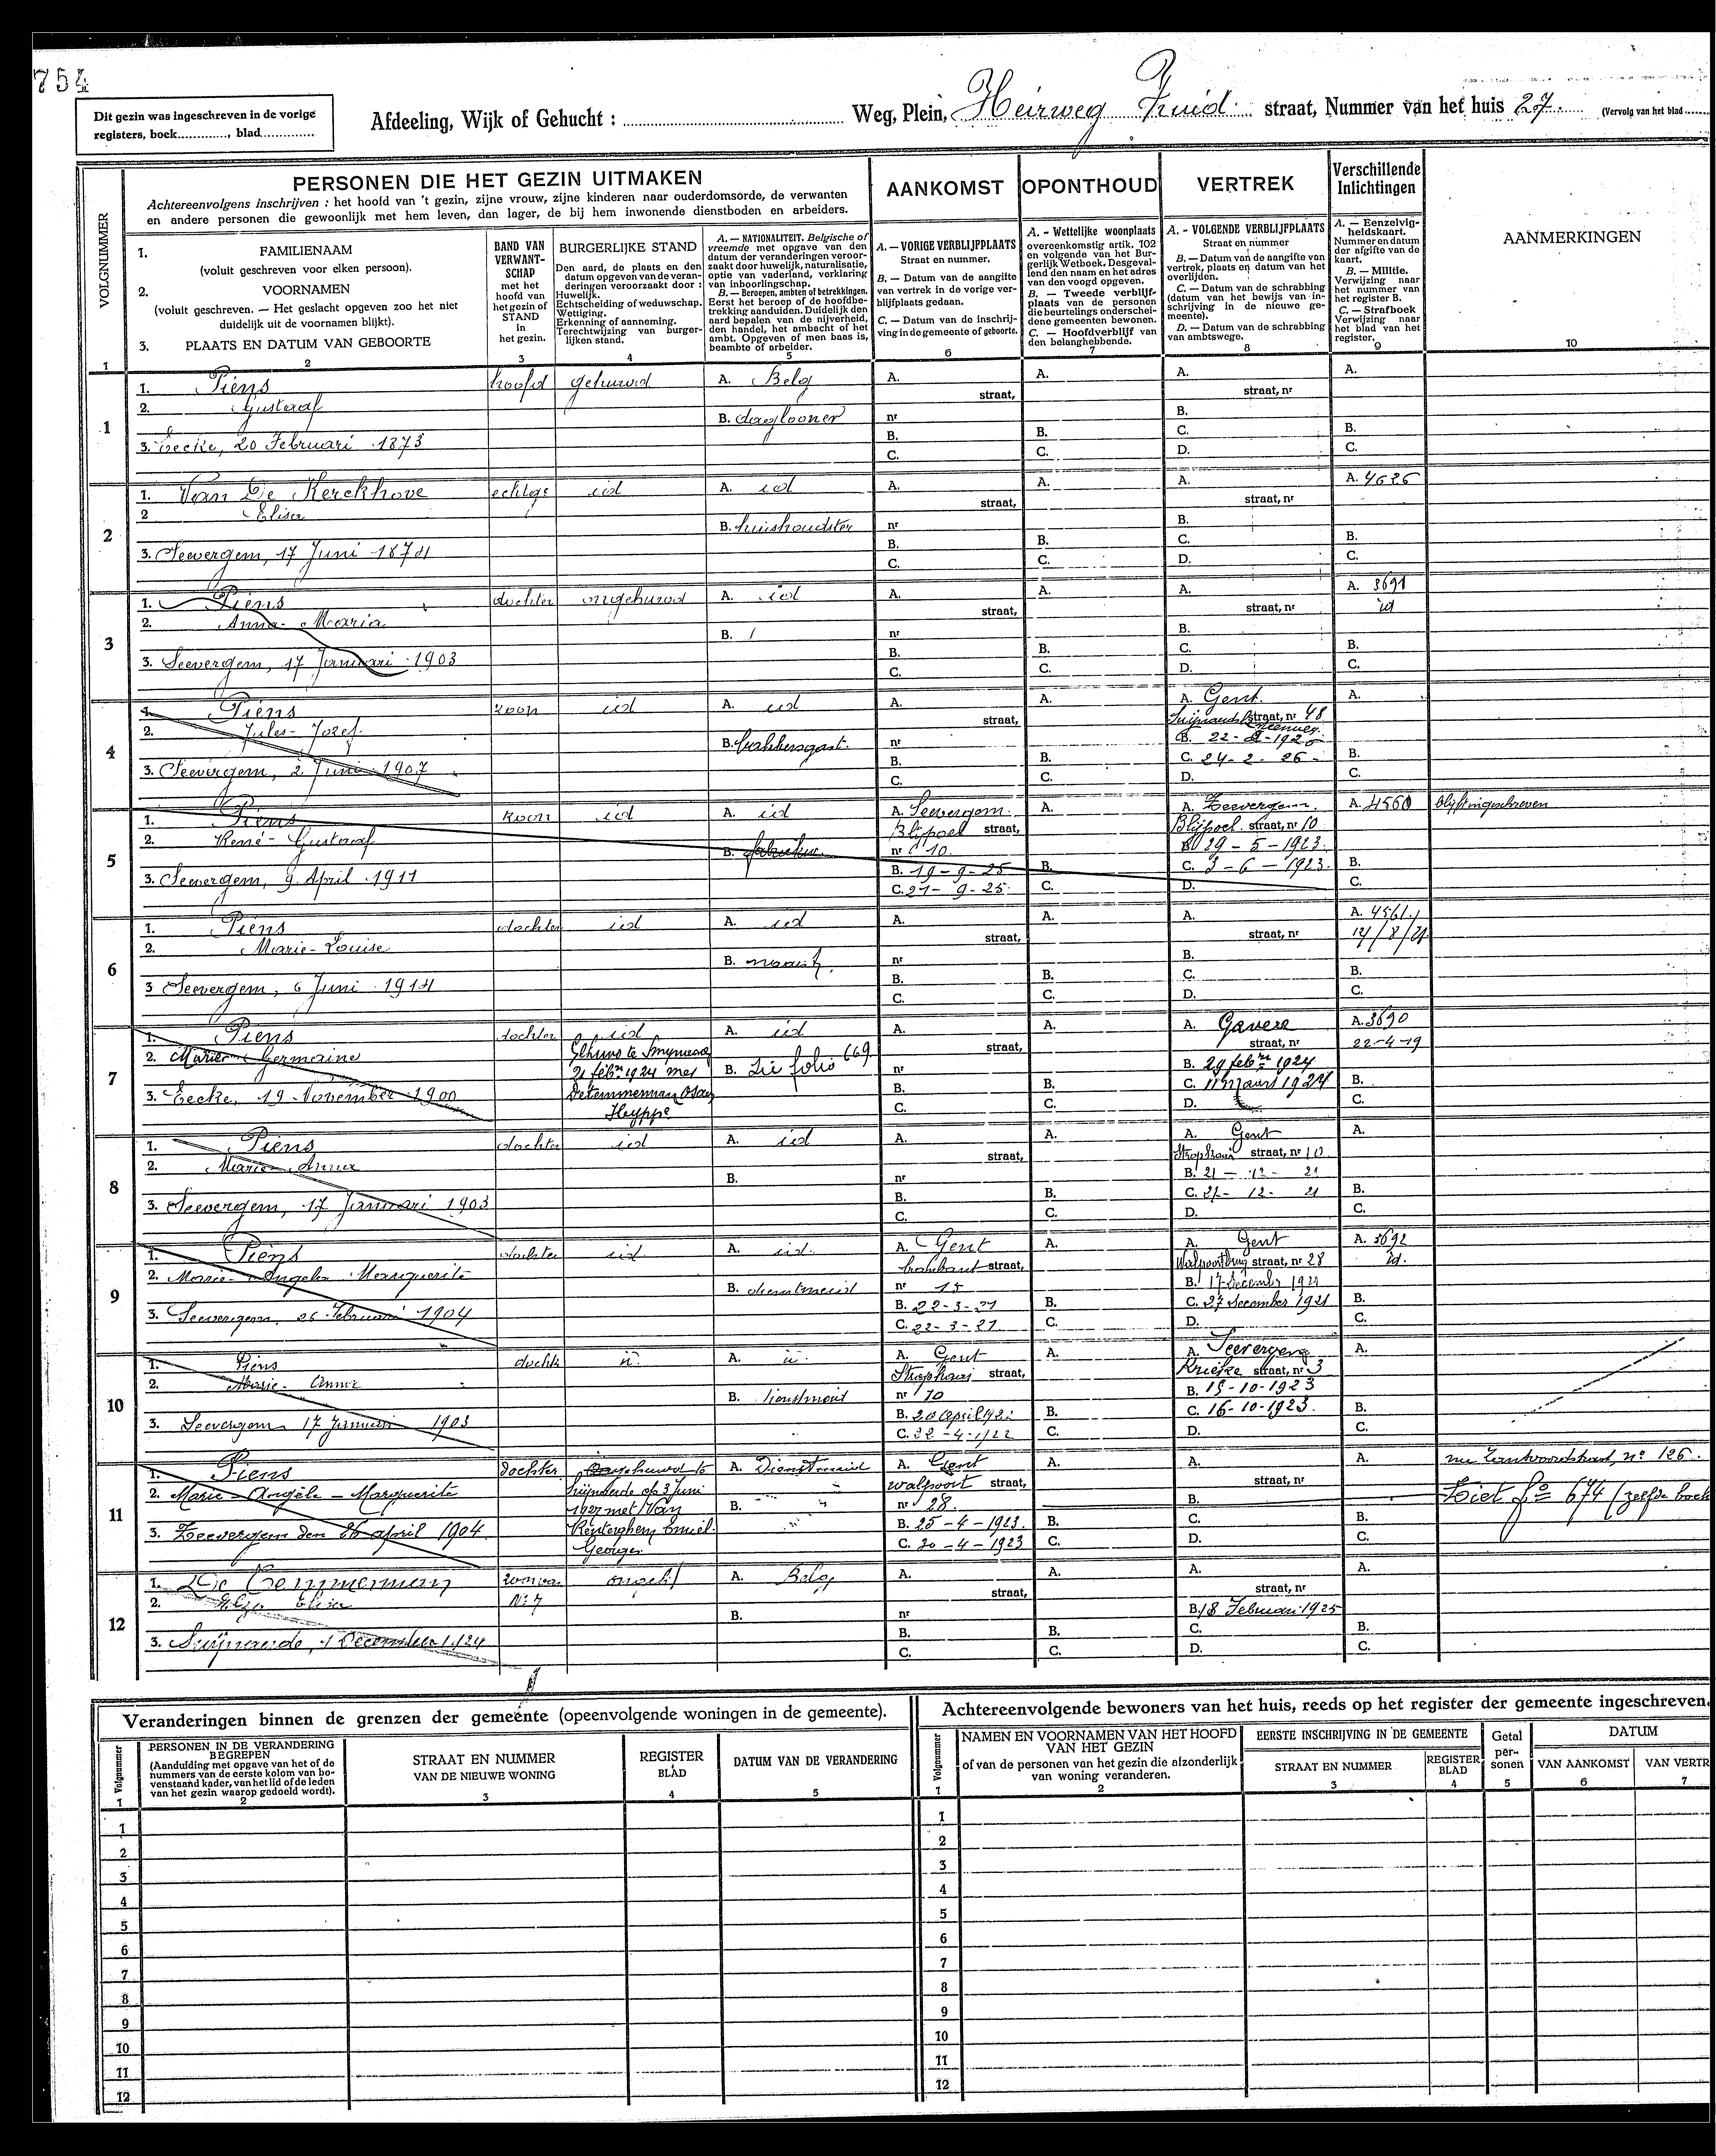 754
Dit gezin was ingeschreven in de vorige
registers, boek............, blad..............
Afdeeling, Wijk of Gehucht : ........................ Weg, Plein, Heirweg Zuid straat, Nummer van het huis 27 (Vervolg van het blad
VOLGNUMMER
PERSONEN DIE HET GEZIN UITMAKEN
Achtereenvolgens inschrijven : het hoofd van 't gezin, zijne vrouw, zijne kinderen naar ouderdomsorde, de verwanten
en andere personen die gewoonlijk met hem leven, dan lager, de bij hem inwonende dienstboden en arbeiders.
AANKOMST
OPONTHOUD
VERTREK
Verschillende
Inlichtingen
AANMERKINGEN
1. FAMILIENAAM
(voluit geschreven voor elken persoon).
2. VOORNAMEN
(voluit geschreven. — Het geslacht opgeven zoo het niet
duidelijk uit de voornamen blijkt).
3. PLAATS EN DATUM VAN GEBOORTE
BAND VAN
VERWANT-
SCHAP
met het
hoofd van
het gezin of
STAND
in
het gezin.
BURGERLIJKE STAND
Den aard, de plaats en den
datum opgeven van de veran-
deringen veroorzaakt door :
Huwelijk.
Echtscheiding of weduwschap.
Wettiging.
Erkenning of aanneming.
Terechtwijzing van burger-
lijken stand.
A. — NATIONALITEIT. Belgische of
vreemde met opgave van den
datum der veranderingen veroor-
zaakt door huwelijk, naturalisatie,
optie van vaderland, verklaring
van inboorlingschap.
B. — Beroepen, ambten of betrekkingen.
Eerst het beroep of de hoofdbe-
trekking aanduiden. Duidelijk den
aard bepalen van de nijverheid,
den handel, het ambacht of het
ambt. Opgeven of men baas is,
beambte of arbeider.
A. — VORIGE VERBLIJFPLAATS
Straat en nummer.
B. — Datum van de aangifte
van vertrek in de vorige ver-
blijfplaats gedaan.
C. — Datum van de inschrij-
ving in de gemeente of geboorte.
A. - Wettelijke woonplaats
overeenkomstig artik. 102
en volgende van het Bur-
gerlijk Wetboek. Desgeval-
lend den naam en het adres
van den voogd opgeven.
B. — Tweede verblijf-
plaats van de personen
die beurtelings onderschei-
dene gemeenten bewonen.
C. — Hoofdverblijf van
den belanghebbende.
A. - VOLGENDE VERBLIJFPLAATS
Straat en nummer
B. — Datum van de aangifte van
vertrek, plaats en datum van het
overlijden.
C. — Datum van de schrabbing
(datum van het bewijs van in-
schrijving in de nieuwe ge-
meente).
D. — Datum van de schrabbing
van ambtswege.
A. — Eenzelvig-
heidskaart.
Nummer en datum
der afgifte van de
kaart.
B. — Militie.
Verwijzing naar
het nummer van
het register B.
C. — Strafboek
Verwijzing naar
het blad van het
register.
1 2 3 4 5 6 7 8 9 10
1
1. Piens hoofd gehuwd A. Belg A. straat, A. A. straat, nr A.
2. Gustaaf B. daglooner nr B.
3. Eecke, 20 Februari 1873 B. C. B. C. C. D. B. C.
2
1. Van De Kerckhove echtge id A. id A. straat, A. A. straat, nr A. 4626
2 Elisa B. huishoudster nr B.
3. Seevergem, 17 Juni 1874 B. C. B. C. C. D. B. C.
3
1. Piens dochter ongehuwd A. id A. straat, A. A. straat, nr A. 3691
2. Anna-Maria B. / nr B. id
3. Seevergem, 17 Januari 1903 B. C. B. C. C. D. B. C.
4
1. Piens zoon id A. id A. straat, A. A. Gent A.
2. Jules-Jozef B. bakkersgast nr straat, nr 48
B. 22-2-1926
3. Seevergem, 2 Juni 1907 B. C. B. C. C. 24-2-26 D. B. C.
5
1. Piens zoon id A. id A. Seevergem A. A. Zeevergem A. 4560 blijft ingeschreven
2. René-Gustaaf B. Blijpoel straat, nr 10 Blijpoel straat, nr 10
B. 29-5-1923
3. Seevergem, 9 April 1911 B. 19-9-25 B. C. 3-6-1923 B.
C. 21-9-25 C. D. C.
6
1. Piens dochter id A. id A. straat, A. A. straat, nr A. 4561
2. Marie-Louise B. naaist. nr B. 14/8/
3 Seevergem, 6 Juni 1914 B. C. B. C. C. D. B. C.
7
1. Piens dochter id A. id A. straat, A. A. Gavere A. 3690
2. Marie Germaine B. Zie folio 669 nr straat, nr 22-4-19
21 febr. 1924 met B. 29 febr. 1924
3. Eecke, 19 November 1900 B. C. B. C. C. 11 maart 1924 D. B. C.
8
1. Piens dochter id A. id A. straat, A. A. Gent A.
2. Marie Anna B. nr Stropkaai straat, nr 10
B. 21-12-21
3. Seevergem, 17 Januari 1903 B. C. B. C. C. 21-12-21 D. B. C.
9
1. Piens dochter id A. id. A. Gent A. A. Gent A. 3692
2. Marie-Angela Marguerite B. dienstmeid brabant straat, nr 15 Walpoortbrug straat, nr 28 id.
B. 17 December 1921
3. Seevergem, 26 Februari 1904 B. 22-3-21 B. C. 27 December 1921 B.
C. 22-3-21 C. D. C.
10
1. Piens dochter A. A. Gent A. A. Seevergem A.
2. Marie-Anna B. dienstmeid Stropkaai straat, nr 10 straat, nr 3
B. 15-10-1923
3. Seevergem 17 Januari 1903 B. 20 April 192 B. C. 16-10-1923. B.
C. 22-4-1922 C. D. C.
11
1. Piens dochter gehuwd te A. Dienstmeid A. Gent A. A. A. nº 126
2. Marie-Angèle-Marguerite op 3 Juni walpoort straat, straat, nr Ziet fº 674 (zelfde boek
1927 met Van B. nr 28. B.
3. Zeevergem den 26 April 1904. Renterghem Emiel B. 25-4-1923. B. C. B.
Georges C. 20-4-1923 C. D. C.
12
1. De Temmerman zoon van ongeh A. Belg A. straat, A. A. straat, nr A.
2. Nº 7 B. nr B. 18 Februari 1925
3. Swijnaerde, 1 December 1924 B. C. B. C. C. D. B. C.
Veranderingen binnen de grenzen der gemeente (opeenvolgende woningen in de gemeente).
Volgnummer
PERSONEN IN DE VERANDERING
BEGREPEN
(Aanduiding met opgave van het of de
nummers van de eerste kolom van bo-
venstaand kader, van het lid of de leden
van het gezin waarop gedoeld wordt).
STRAAT EN NUMMER
VAN DE NIEUWE WONING
REGISTER
BLAD
DATUM VAN DE VERANDERING
1 2 3 4 5
1
2
3
4
5
6
7
8
9
10
11
12
Achtereenvolgende bewoners van het huis, reeds op het register der gemeente ingeschreven.
Volgnummer
NAMEN EN VOORNAMEN VAN HET HOOFD
VAN HET GEZIN
of van de personen van het gezin die afzonderlijk
van woning veranderen.
EERSTE INSCHRIJVING IN DE GEMEENTE
STRAAT EN NUMMER
REGISTER
BLAD
Getal
per-
sonen
DATUM
VAN AANKOMST
VAN VERTR
1 2 3 4 5 6 7
1
2
3
4
5
6
7
8
9
10
11
12